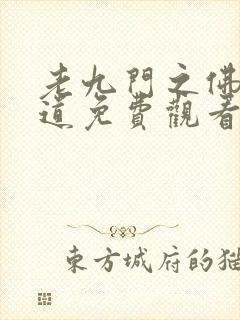 老九門之佛
道免費觀看
東方城府的猫